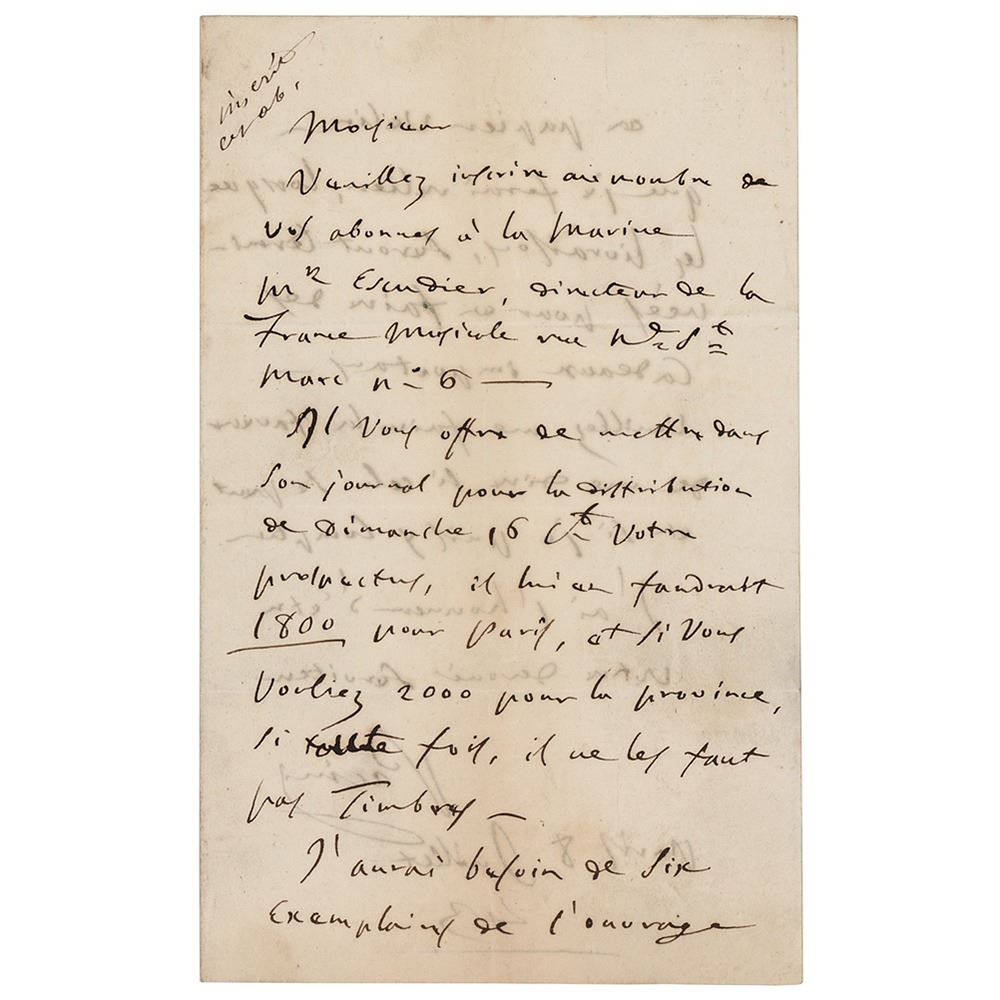 inscrit
et ab.
Monsieur
Veuillez inscrire au nombre de
vos abonnes à la Marine
Mr Escudier, directeur de la
France Musicale rue Ne St
Marc n° 6 —
Il vous offre de mettre dans
son journal pour la distribution
de Dimanche 16 Ct votre
prospectus, il lui en faudrait
1800 pour Paris, et si vous
vouliez 2000 pour la province,
si toute fois, il ne les faut
pas Timbres —
J'aurai besoin de Six
exemplaires de l'ouvrage